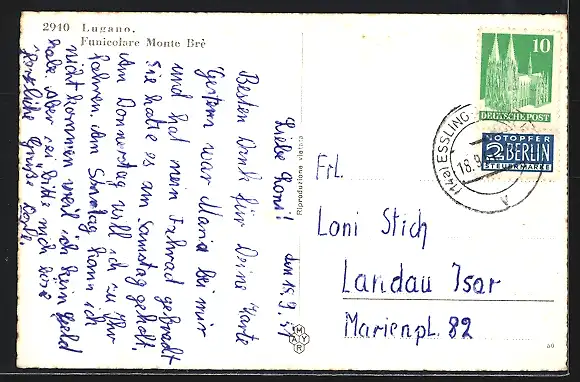 2940 Lugano.
Funicolare Monte Brè
den 18.9.51
Liebe Loni!
Besten Dank für Deine Karte
Gestern war Maria bei mir
und hat mein Fahrrad gebracht
Sie hatte es am Samstag geholt.
Am Donnerstag will ich zu Ihr
fahren. Am Sonntag kann ich
nicht kommen weil ich kein Geld
habe. Aber sei bitte nich böse
Herzliche Grüße
Riproduzione vietata
MAYR
10
DEUTSCHE POST
NOTOPFER
2 BERLIN
STEUERMARKE
(14a) ESSLING
18.9
A
Frl.
Loni Stich
Landau Isar
Marienpl. 82